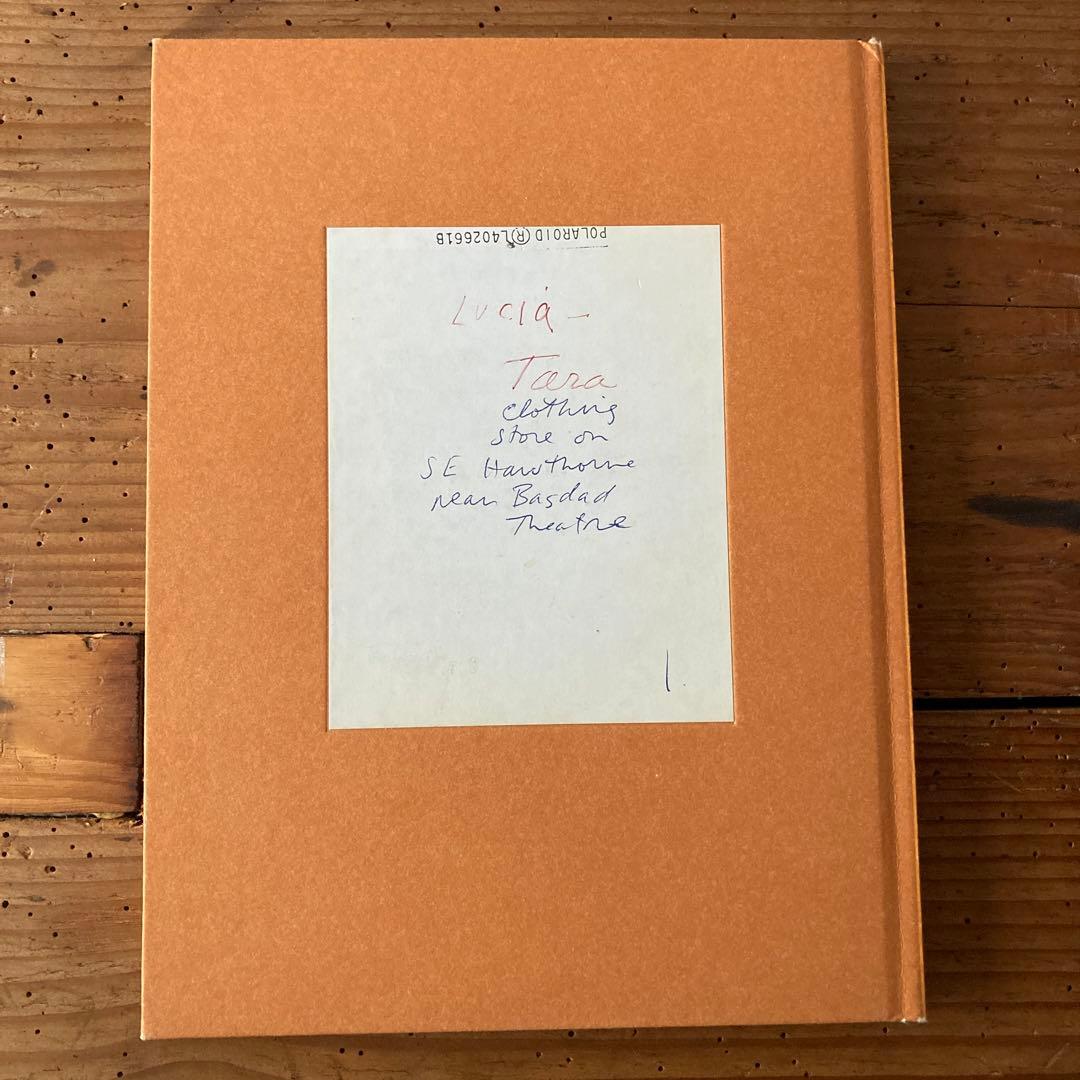 POLAROID ® L402661B
Lucia -
Tara
clothing
store on
SE Hawthorne
near Bagdad
Theatre
1.